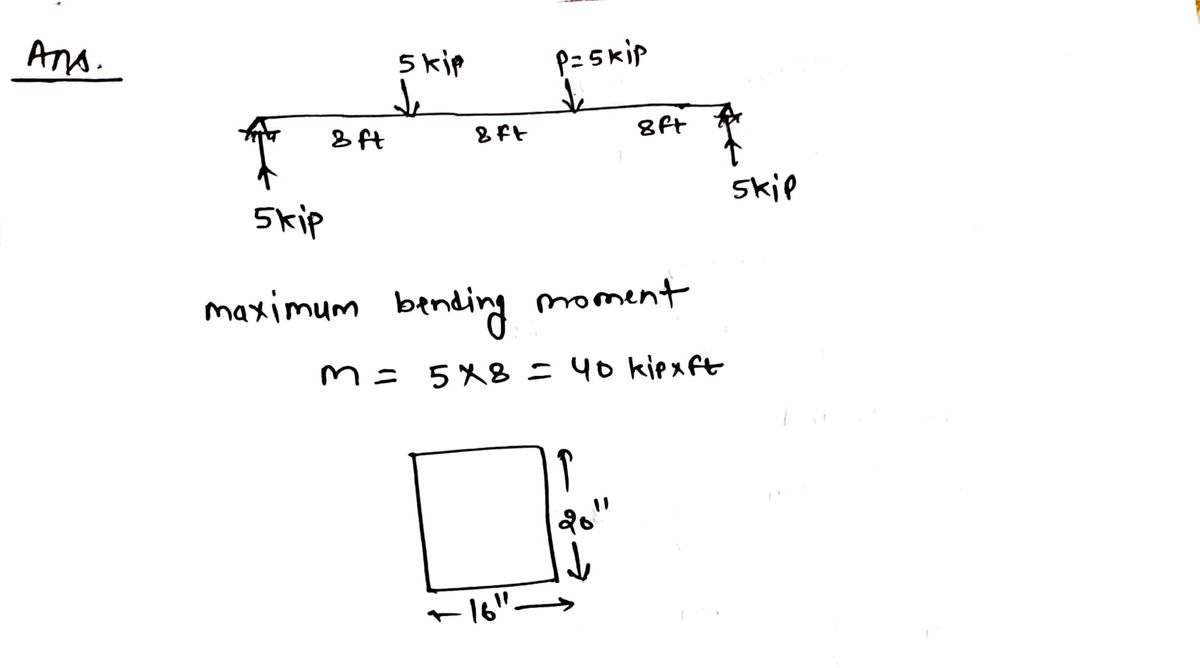 Ans.
5 kip P=5kip
8 ft 8 ft 8ft
5kip
5kip
maximum bending moment
m = 5×8 = 40 kip×ft
20"
16"